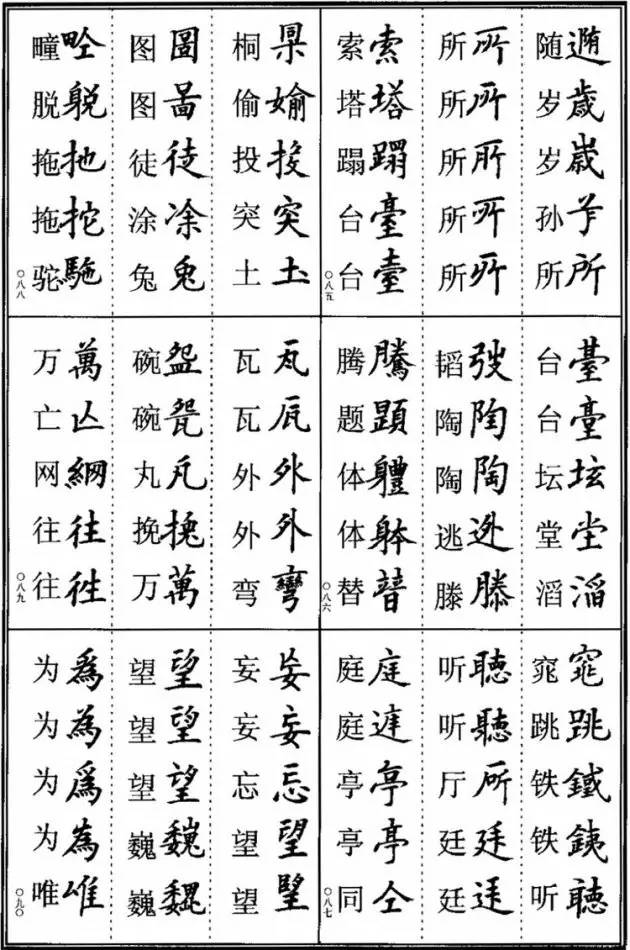 随遀岁歳岁嵗孙所所
所所所所所所所所所所
索索塔塔蹋蹋台臺台臺
〇八五
台臺台臺坛坛堂坣滔滔
韬弢陶陶陶陶逃迯滕滕
腾騰题体軆体躰替
〇八六
窕窕跳跳铁鐵铁銕听聽
听聽听聽厅所廷廷廷
庭庭庭亭亭亭亭同仝
〇八七
桐偷媮投投突突土圡
图圖图啚徒徒涂凃兔兔
疃脱拖扡拖拕驼駞
〇八八
瓦瓦瓦外外外外弯彎
碗盌碗丸挽万萬
万萬亡亾网網往往往徃
〇八九
妄妄妄妄忘忘望望望
望望望望望望巍巍巍
为為为為为爲为為唯唯
〇九〇